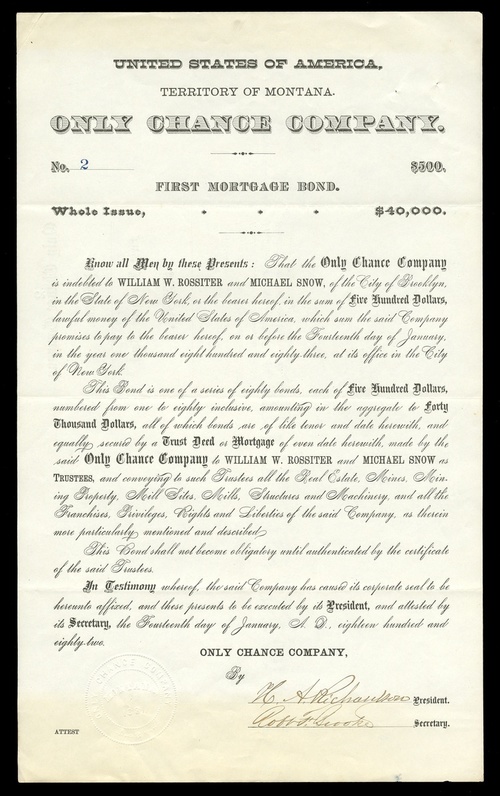 UNITED STATES OF AMERICA,
TERRITORY OF MONTANA.
ONLY CHANCE COMPANY.
No. 2 $500.
FIRST MORTGAGE BOND.
Whole Issue, $40,000.
Know all Men by these Presents: That the Only Chance Company
is indebted to WILLIAM W. ROSSITER and MICHAEL SNOW, of the City of Brooklyn,
in the State of New York, or the bearer hereof, in the sum of Five Hundred Dollars,
lawful money of the United States of America, which sum the said Company
promises to pay to the bearer hereof, on or before the Fourteenth day of January,
in the year one thousand eight hundred and eighty-three, at its office in the City
of New York.
This Bond is one of a series of eighty bonds, each of Five Hundred Dollars,
numbered from one to eighty inclusive, amounting in the aggregate to Forty
Thousand Dollars, all of which bonds are of like tenor and date herewith, and
equally secured by a Trust Deed or Mortgage of even date herewith, made by the
said Only Chance Company to WILLIAM W. ROSSITER and MICHAEL SNOW as
TRUSTEES, and conveying to such Trustees all the Real Estate, Mines, Min-
ing Property, Mill Sites, Mills, Structures and Machinery, and all the
Franchises, Privileges, Rights and Liberties of the said Company, as therein
more particularly mentioned and described.
This Bond shall not become obligatory until authenticated by the certificate
of the said Trustees.
In Testimony whereof, the said Company has caused its corporate seal to be
hereunto affixed, and these presents to be executed by its President, and attested by
its Secretary, the Fourteenth day of January, A. D., eighteen hundred and
eighty-two.
ONLY CHANCE COMPANY,
By
H. A. Richardson President.
Secretary.
ATTEST